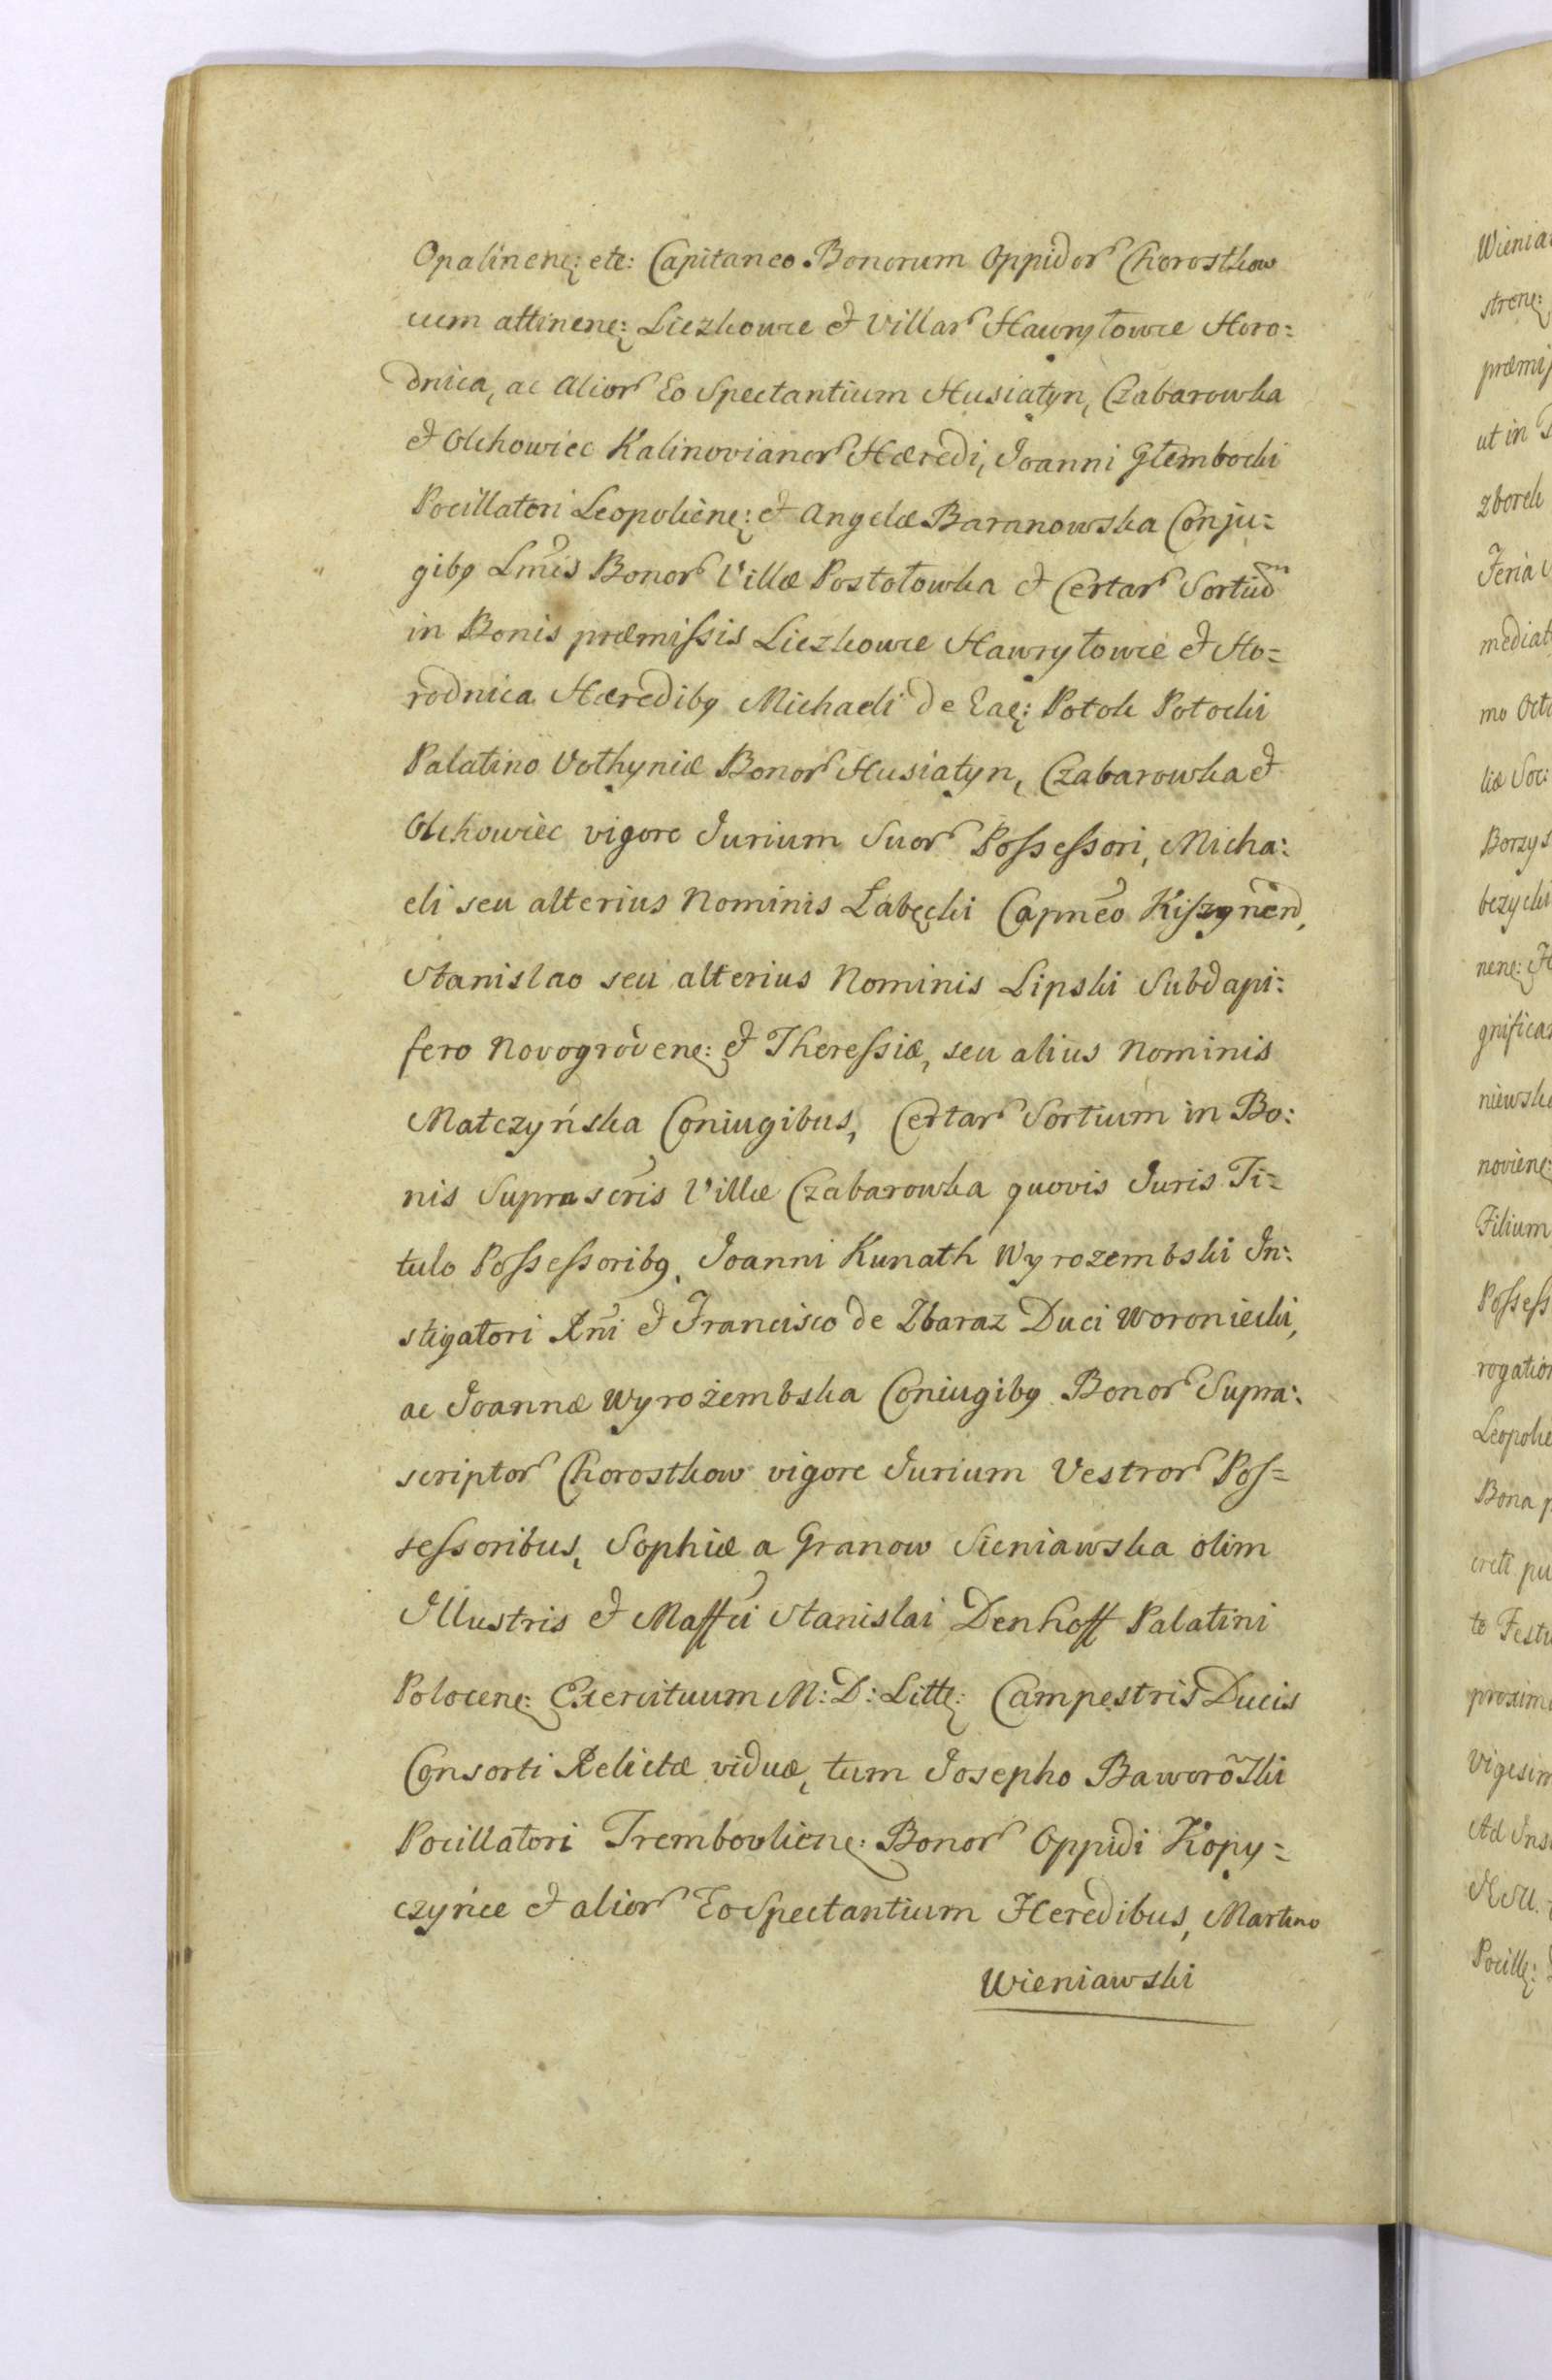 Opalinenę: etc: Capitaneo Bonorum Oppidor Chorostkow
cum attinenę: Liczkowce et Villar Hawryłowce Horo:
dnica, ac Alior Eo Spectantium Husiatyn, Czabarowka
et Olchowiec Kalinovianor Hæredi, Joanni Głembocki
Pocillatori Leopolienę: et Angelæ Baranowska Conju:
gibꝫ Lmis Bonor Villæ Postołowka et Certar Sortium
in Bonis præmissis Liczkowce Hawryłowce et Ho=
rodnica Hæredibꝫ Michaeli de Eaę: Potok Potocki
Palatino Vołhyniæ Bonor Husiatyn, Czabarowka et
Olchowiec vigore Jurium Suor Possessori, Micha:
eli seu alterius Nominis Łabęcki Capneo Kiszynen,
Stanislao seu alterius Nominis Lipski Subdapi:
fero Novogrodenę: et Theressiæ, seu alius Nominis
Matczyńska Coniugibus, Certar Sortium in Bo:
nis Suprascris Villæ Czabarowka quovis Juris Ti=
tulo Possessoribꝫ, Joanni Kunath Wyrozembski In:
stigatori Rni et Francisco de Zbaraz Duci Woroniecki,
ac Joannæ Wyrożembska Coniugibꝫ Bonor Supra:
scriptor Chorostkow vigore Jurium Vestror Pos=
sessoribus, Sophiæ a Granow Sieniawska olim
Illustris et Maffci Stanislai Denhoff Palatini
Polocenę: Exercituum M: D: Littę: Campestris Ducis
Consorti Relictæ viduæ, tum Josepho Baworoski
Pocillatori Trembovlienę: Bonor Oppidi Kopy=
czyńce et alior Eo Spectantium Heredibus, Martino
Wieniawski